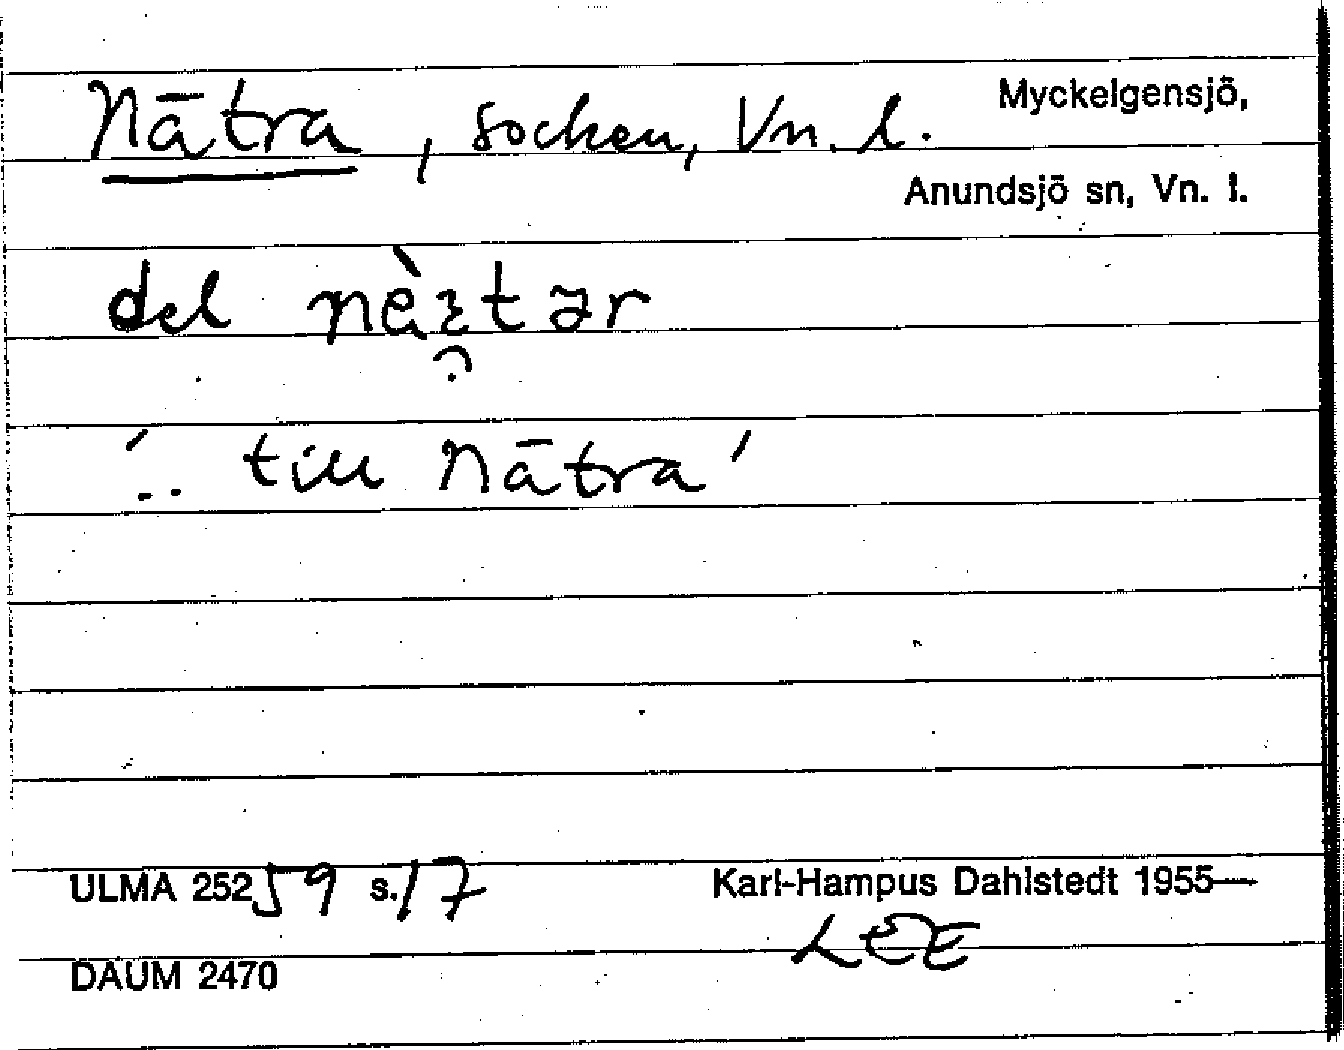 Nätra, socken, Vn. l.
Myckelgensjö,
Anundsjö sn, Vn. l.
del
'.. till Nätra'
ULMA 25259 s. 17
Karl-Hampus Dahlstedt 1955—
LEE
DAUM 2470